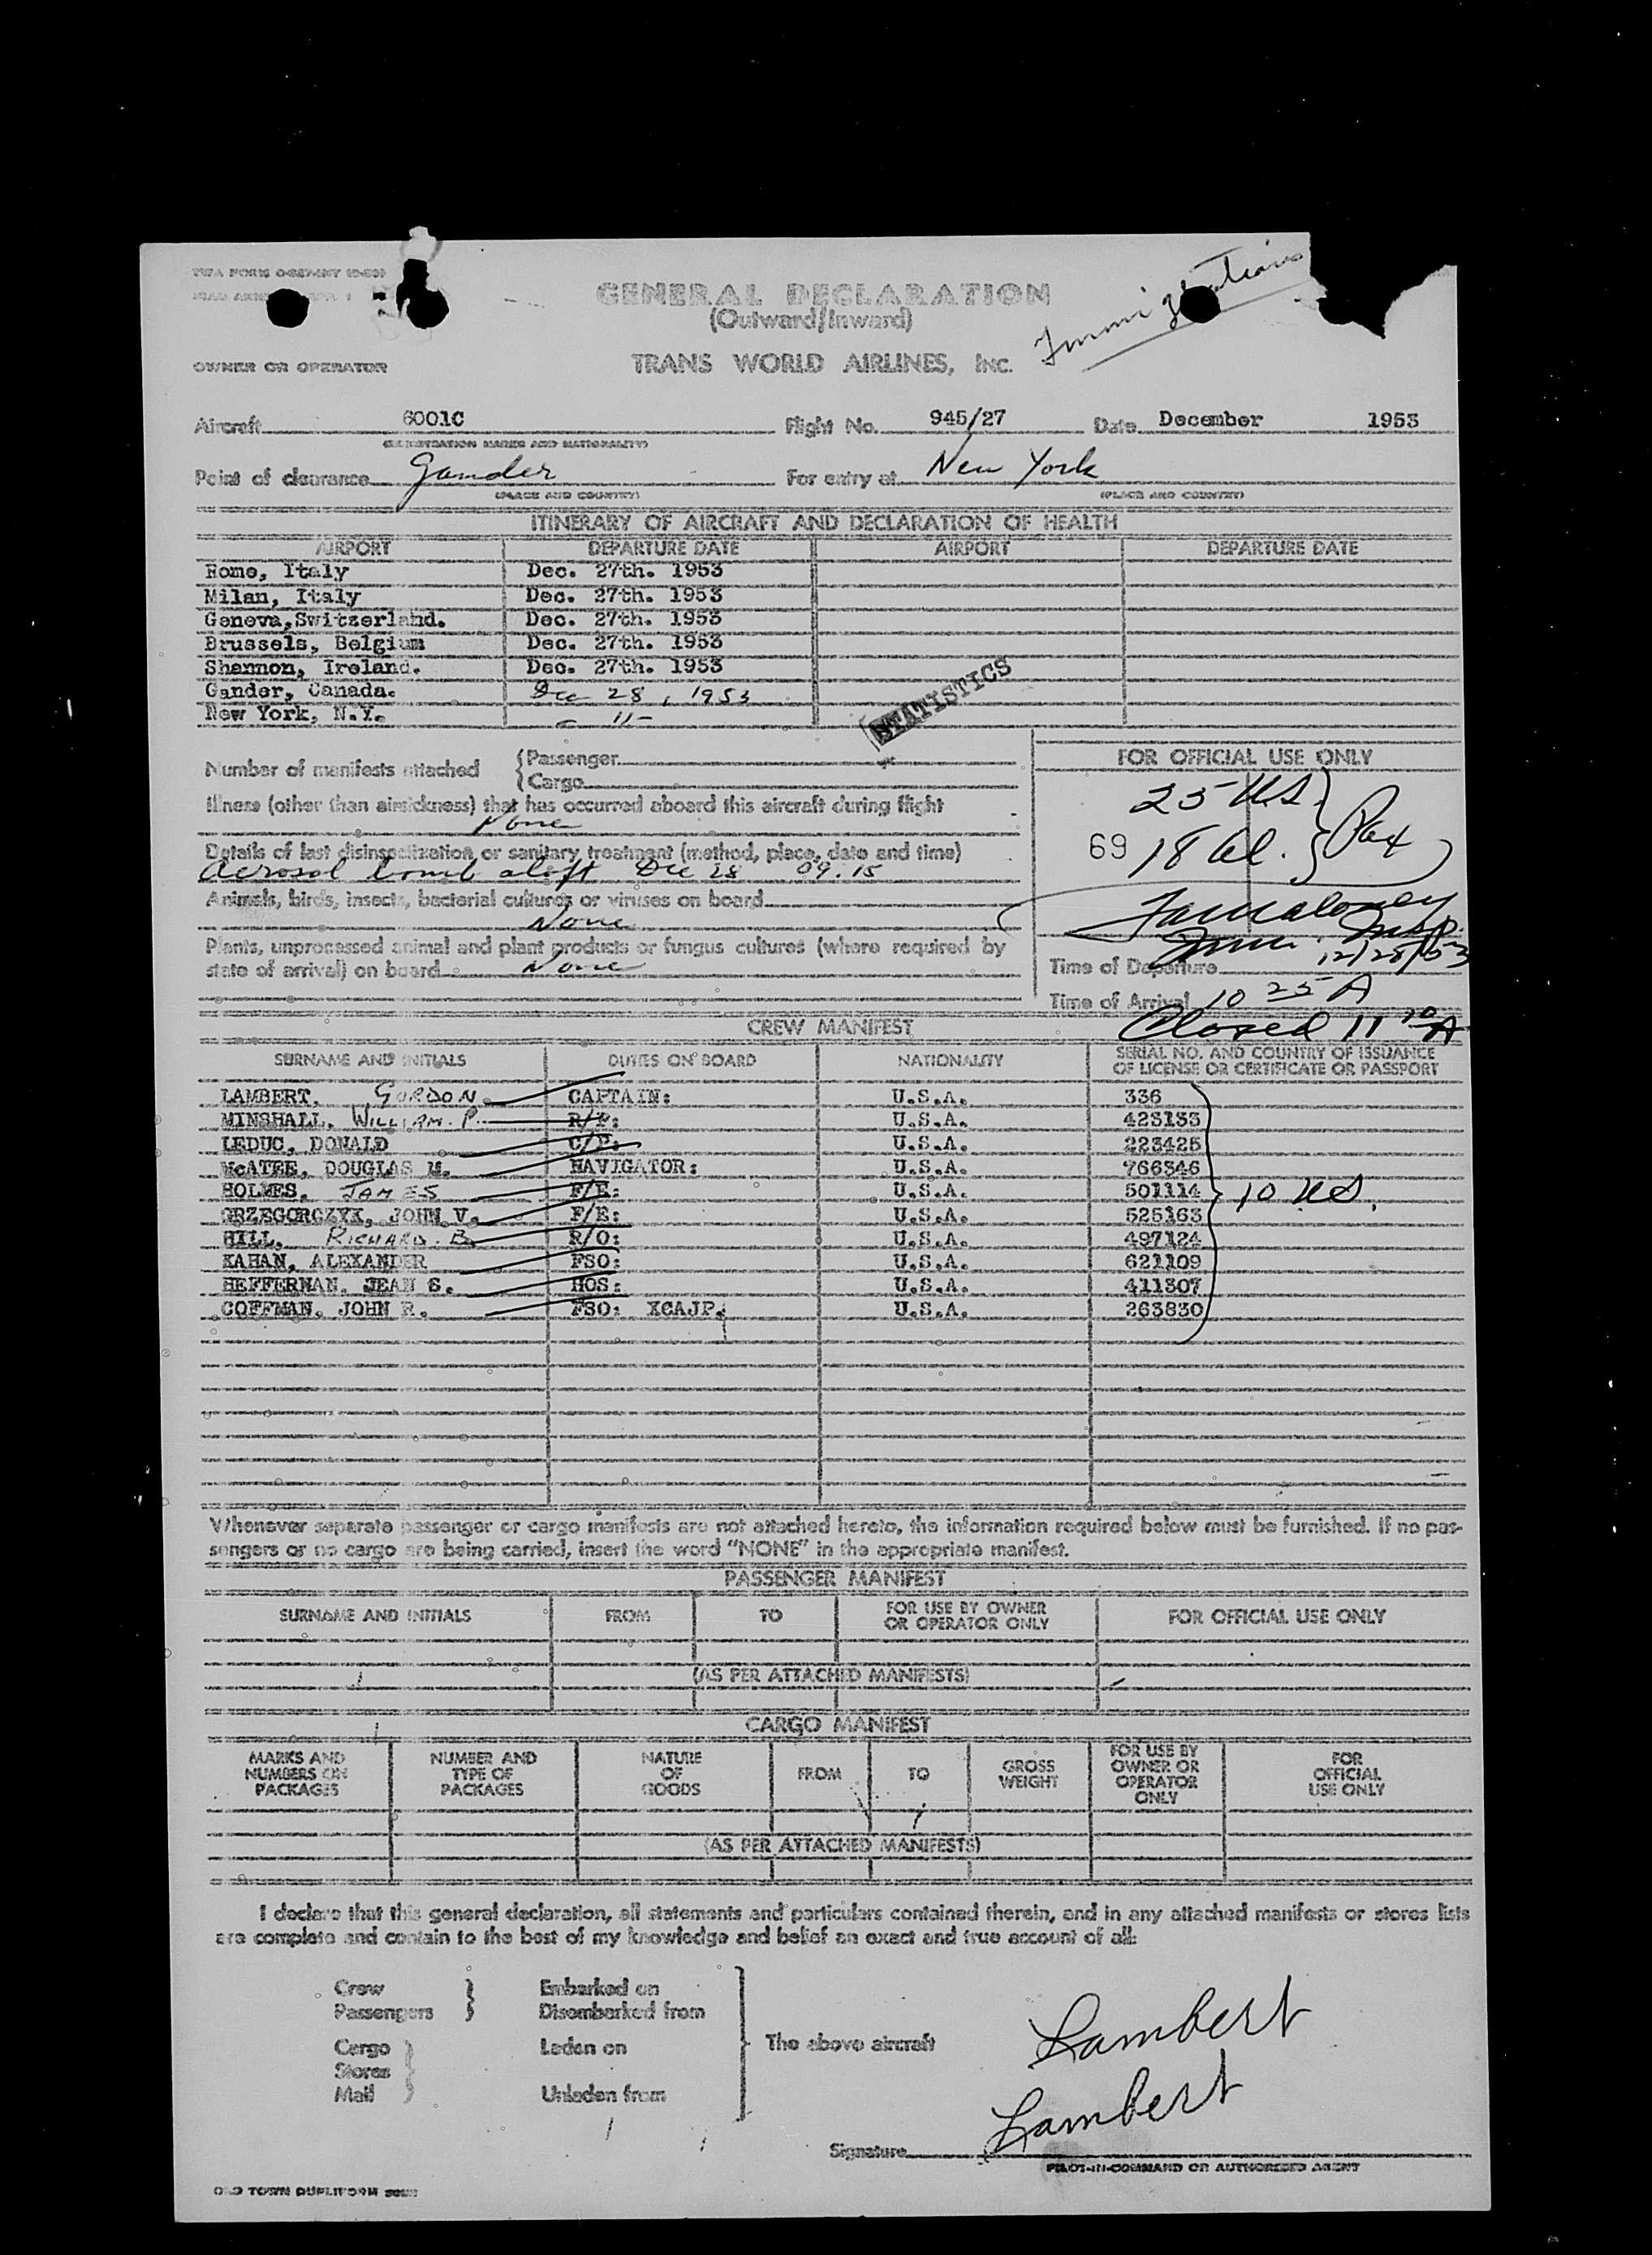 GENERAL DECLARATION
(Outward/Inward)
Immigration
OWNER OR OPERATOR TRANS WORLD AIRLINES, Inc.
Aircraft 6001C Flight No. 945/27 Date December 1953
(REGISTRATION MARKS AND NATIONALITY)
Point of clearance Gander For entry at New York
(PLACE AND COUNTRY) (PLACE AND COUNTRY)
ITINERARY OF AIRCRAFT AND DECLARATION OF HEALTH
AIRPORT DEPARTURE DATE AIRPORT DEPARTURE DATE
Rome, Italy Dec. 27th. 1953
Milan, Italy Dec. 27th. 1953
Geneva, Switzerland. Dec. 27th. 1953
Brussels, Belgium Dec. 27th. 1953
Shannon, Ireland. Dec. 27th. 1953
Gander, Canada. Dec 28, 1953
New York, N.Y. - 11 -
STATISTICS
Number of manifests attached {Passenger
{Cargo
FOR OFFICIAL USE ONLY
Illness (other than airsickness) that has occurred aboard this aircraft during flight
None
25 US.
69 18 Al. } Pax
Details of last disinsectization or sanitary treatment (method, place, date and time)
Aerosol bomb aloft Dec 28 09.15
Animals, birds, insects, bacterial cultures or viruses on board
None
Imm. Insp.
12/28/53
Plants, unprocessed animal and plant products or fungus cultures (where required by
state of arrival) on board None
Time of Departure
Time of Arrival 10 25 A
Closed 11 10 A
CREW MANIFEST
SURNAME AND INITIALS DUTIES ON BOARD NATIONALITY SERIAL NO. AND COUNTRY OF ISSUANCE
OF LICENSE OR CERTIFICATE OR PASSPORT
LAMBERT, GORDON. CAPTAIN: U.S.A. 336
MINSHALL, WILLIAM. P. R/P: U.S.A. 423133
LEDUC, DONALD C/P: U.S.A. 223425
McATEE, DOUGLAS M. NAVIGATOR: U.S.A. 766346
HOLMES, JAMES F/E: U.S.A. 501114 } 10 US.
GRZEGORCZYK, JOHN V. F/E: U.S.A. 525163
HILL, RICHARD. B. R/O: U.S.A. 497124
KAHAN, ALEXANDER FSO: U.S.A. 621109
HEFFERNAN, JEAN S. HOS: U.S.A. 411307
COFFMAN, JOHN R. FSO: XCAJP. U.S.A. 263830
Whenever separate passenger or cargo manifests are not attached hereto, the information required below must be furnished. If no pas-
sengers or no cargo are being carried, insert the word "NONE" in the appropriate manifest.
PASSENGER MANIFEST
SURNAME AND INITIALS FROM TO FOR USE BY OWNER
OR OPERATOR ONLY FOR OFFICIAL USE ONLY
(AS PER ATTACHED MANIFESTS)
CARGO MANIFEST
MARKS AND
NUMBERS ON
PACKAGES
NUMBER AND
TYPE OF
PACKAGES
NATURE
OF
GOODS
FROM
TO
GROSS
WEIGHT
FOR USE BY
OWNER OR
OPERATOR
ONLY
FOR
OFFICIAL
USE ONLY
(AS PER ATTACHED MANIFESTS)
I declare that this general declaration, all statements and particulars contained therein, and in any attached manifests or stores lists
are complete and contain to the best of my knowledge and belief an exact and true account of all:
Crew Embarked on
Passengers Disembarked from
Cargo Laden on The above aircraft
Stores
Mail Unladen from
Lambert
Lambert
Signature
PILOT-IN-COMMAND OR AUTHORIZED AGENT
OLD TOWN DUPLIFORM